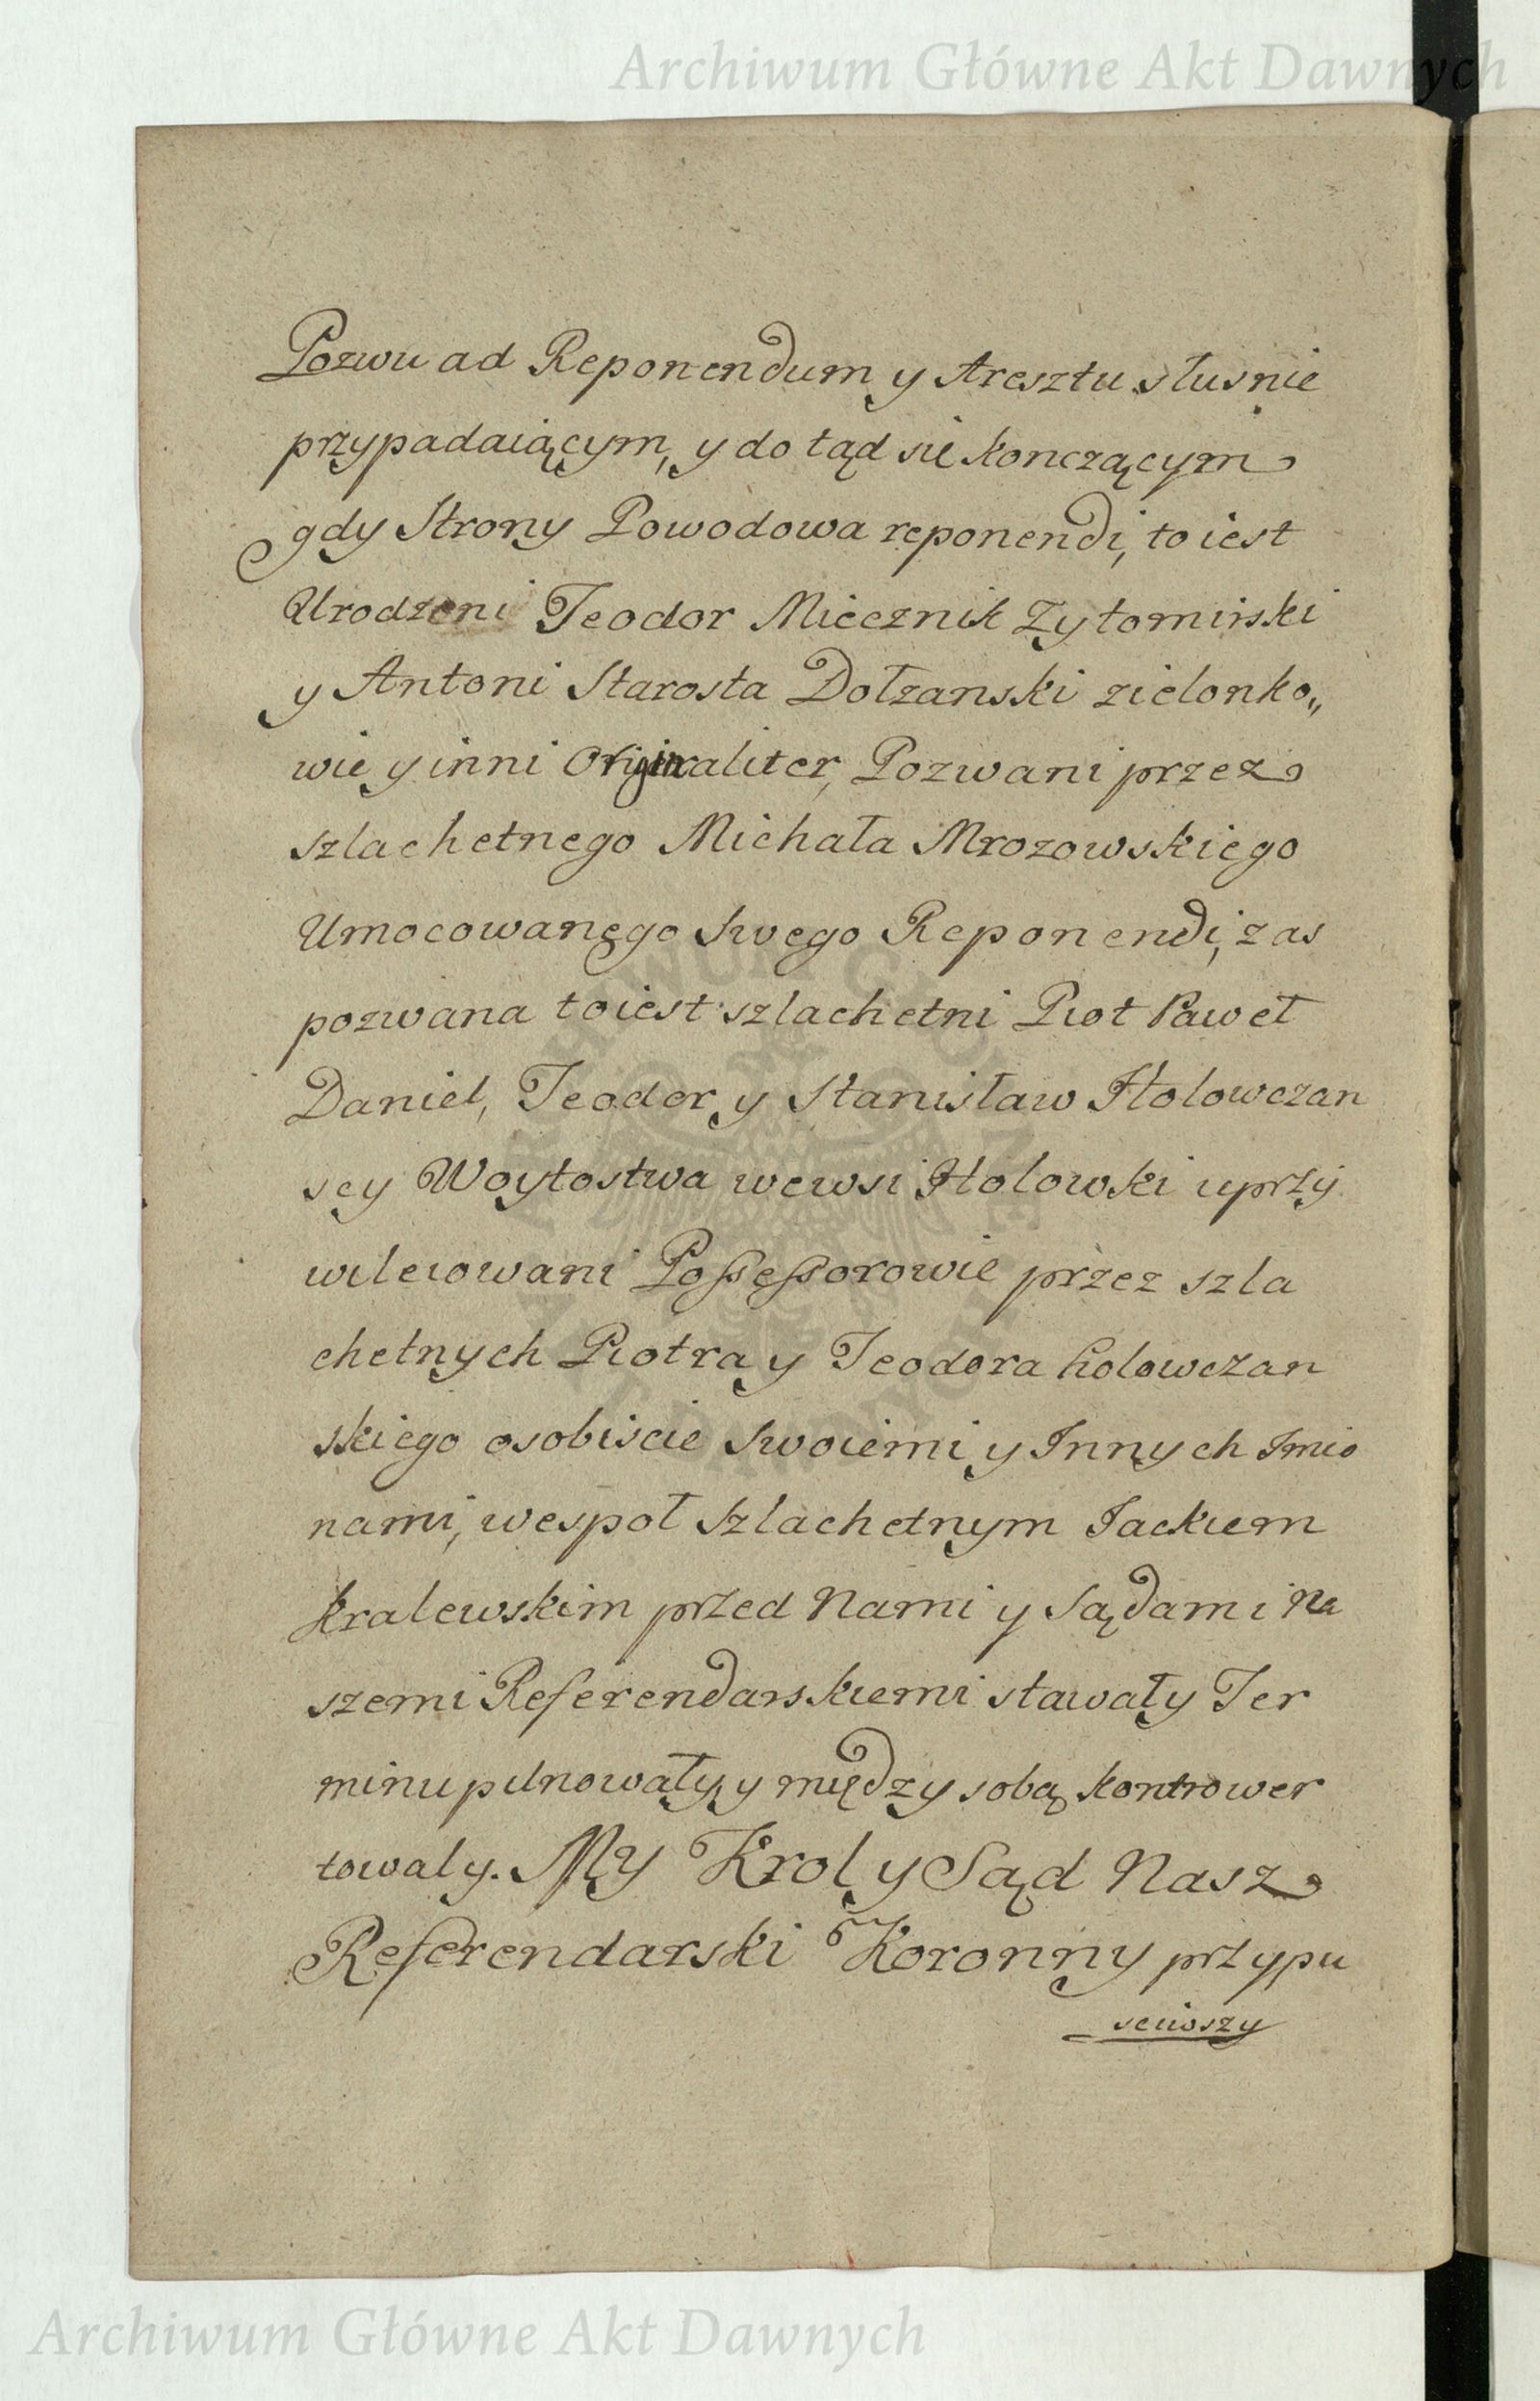 Archiwum Główne Akt Dawnych
Pozwu ad Reponendum y Aresztu słusnie
przypadaiącym, y do tąd się konczącym
gdy Strony Powodowa reponendi, to iest
Urodzeni Teodor Miecznik Zytomirski
y Antoni Starosta Dołzanski zielonko„
wie y inni Originaliter, Pozwani przez
szlachetnego Michała Mrozowskiego
Umocowanego Swego Reponendi, zas
pozwana to iest szlachetni Piot Paweł
Daniel, Teodor y Stanisław Hołowczan
scy Woytostwa wewsi Holowki uprzy
wileiowani Possessorowie przez szla
chetnych Piotra y Teodora holowczan
skiego osobiscie Swoiemi y Innych Imio
nami, wespoł Szlachetnym Iackiem
kralewskim przed Nami y Sądami Na
szemi Referendarskiemi stawały Ter
minu pilnowały, y między sobą kontrower
towaly. My Krol y Sąd Nasz
Referendarski Koronny przypu
sciwszy
Archiwum Główne Akt Dawnych